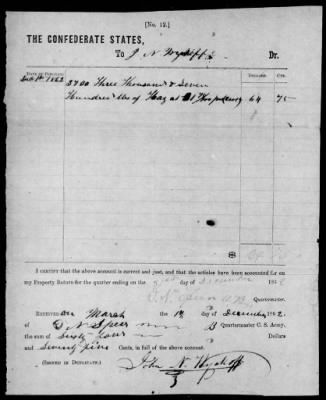 [No. 12.]
THE CONFEDERATE STATES,
To J N Wyckoff Dr.
DATE OF PURCHASE. DOLLARS. CTS.
1862 3700 Three Thousand & Seven
Hundred lbs of Hay at 64 75
I CERTIFY that the above account is correct and just, and that the articles have been accounted for on
my Property Return for the quarter ending on the December 1862
Quartermaster.
RECEIVED on March the December 1862,
of D N Speer Quartermaster C. S. Army,
the sum of Sixty four Dollars
and Seventy five Cents, in full of the above account.
(SIGNED IN DUPLICATE.) John N. Wyckoff